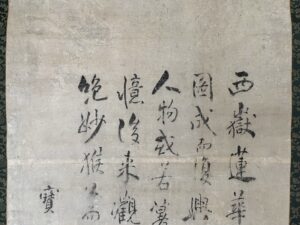 西嶽蓮華
圖成而復興
人物或若
憶後來觀
絶妙猴
寶